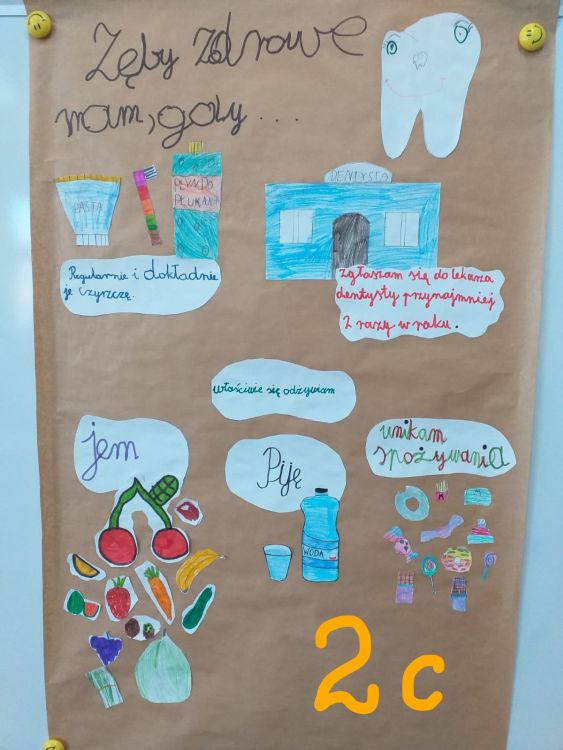 Zęby zdrowe
mam, gdy...
PASTA
PŁYN DO
PŁUKANIA
DENTYSTA
Regularnie i dokładnie
je czyszczę.
zgłaszam się do lekarza
dentysty przynajmniej
2 razy w roku.
właściwie się odżywiam
jem
Piję
unikam
spożywania
WODA
2c